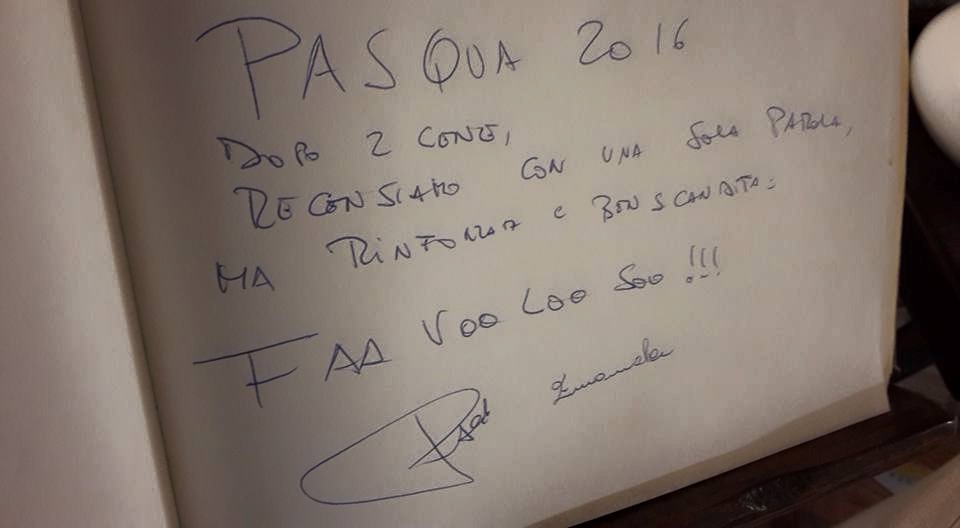 PASQUA 2016
DOPO 2 CENE,
RECENSIAMO CON UNA SOLA PAROLA,
MA RINFORZATA E BEN SCANDITA:
FAA VOO LOO SOO !!!
Emanuela